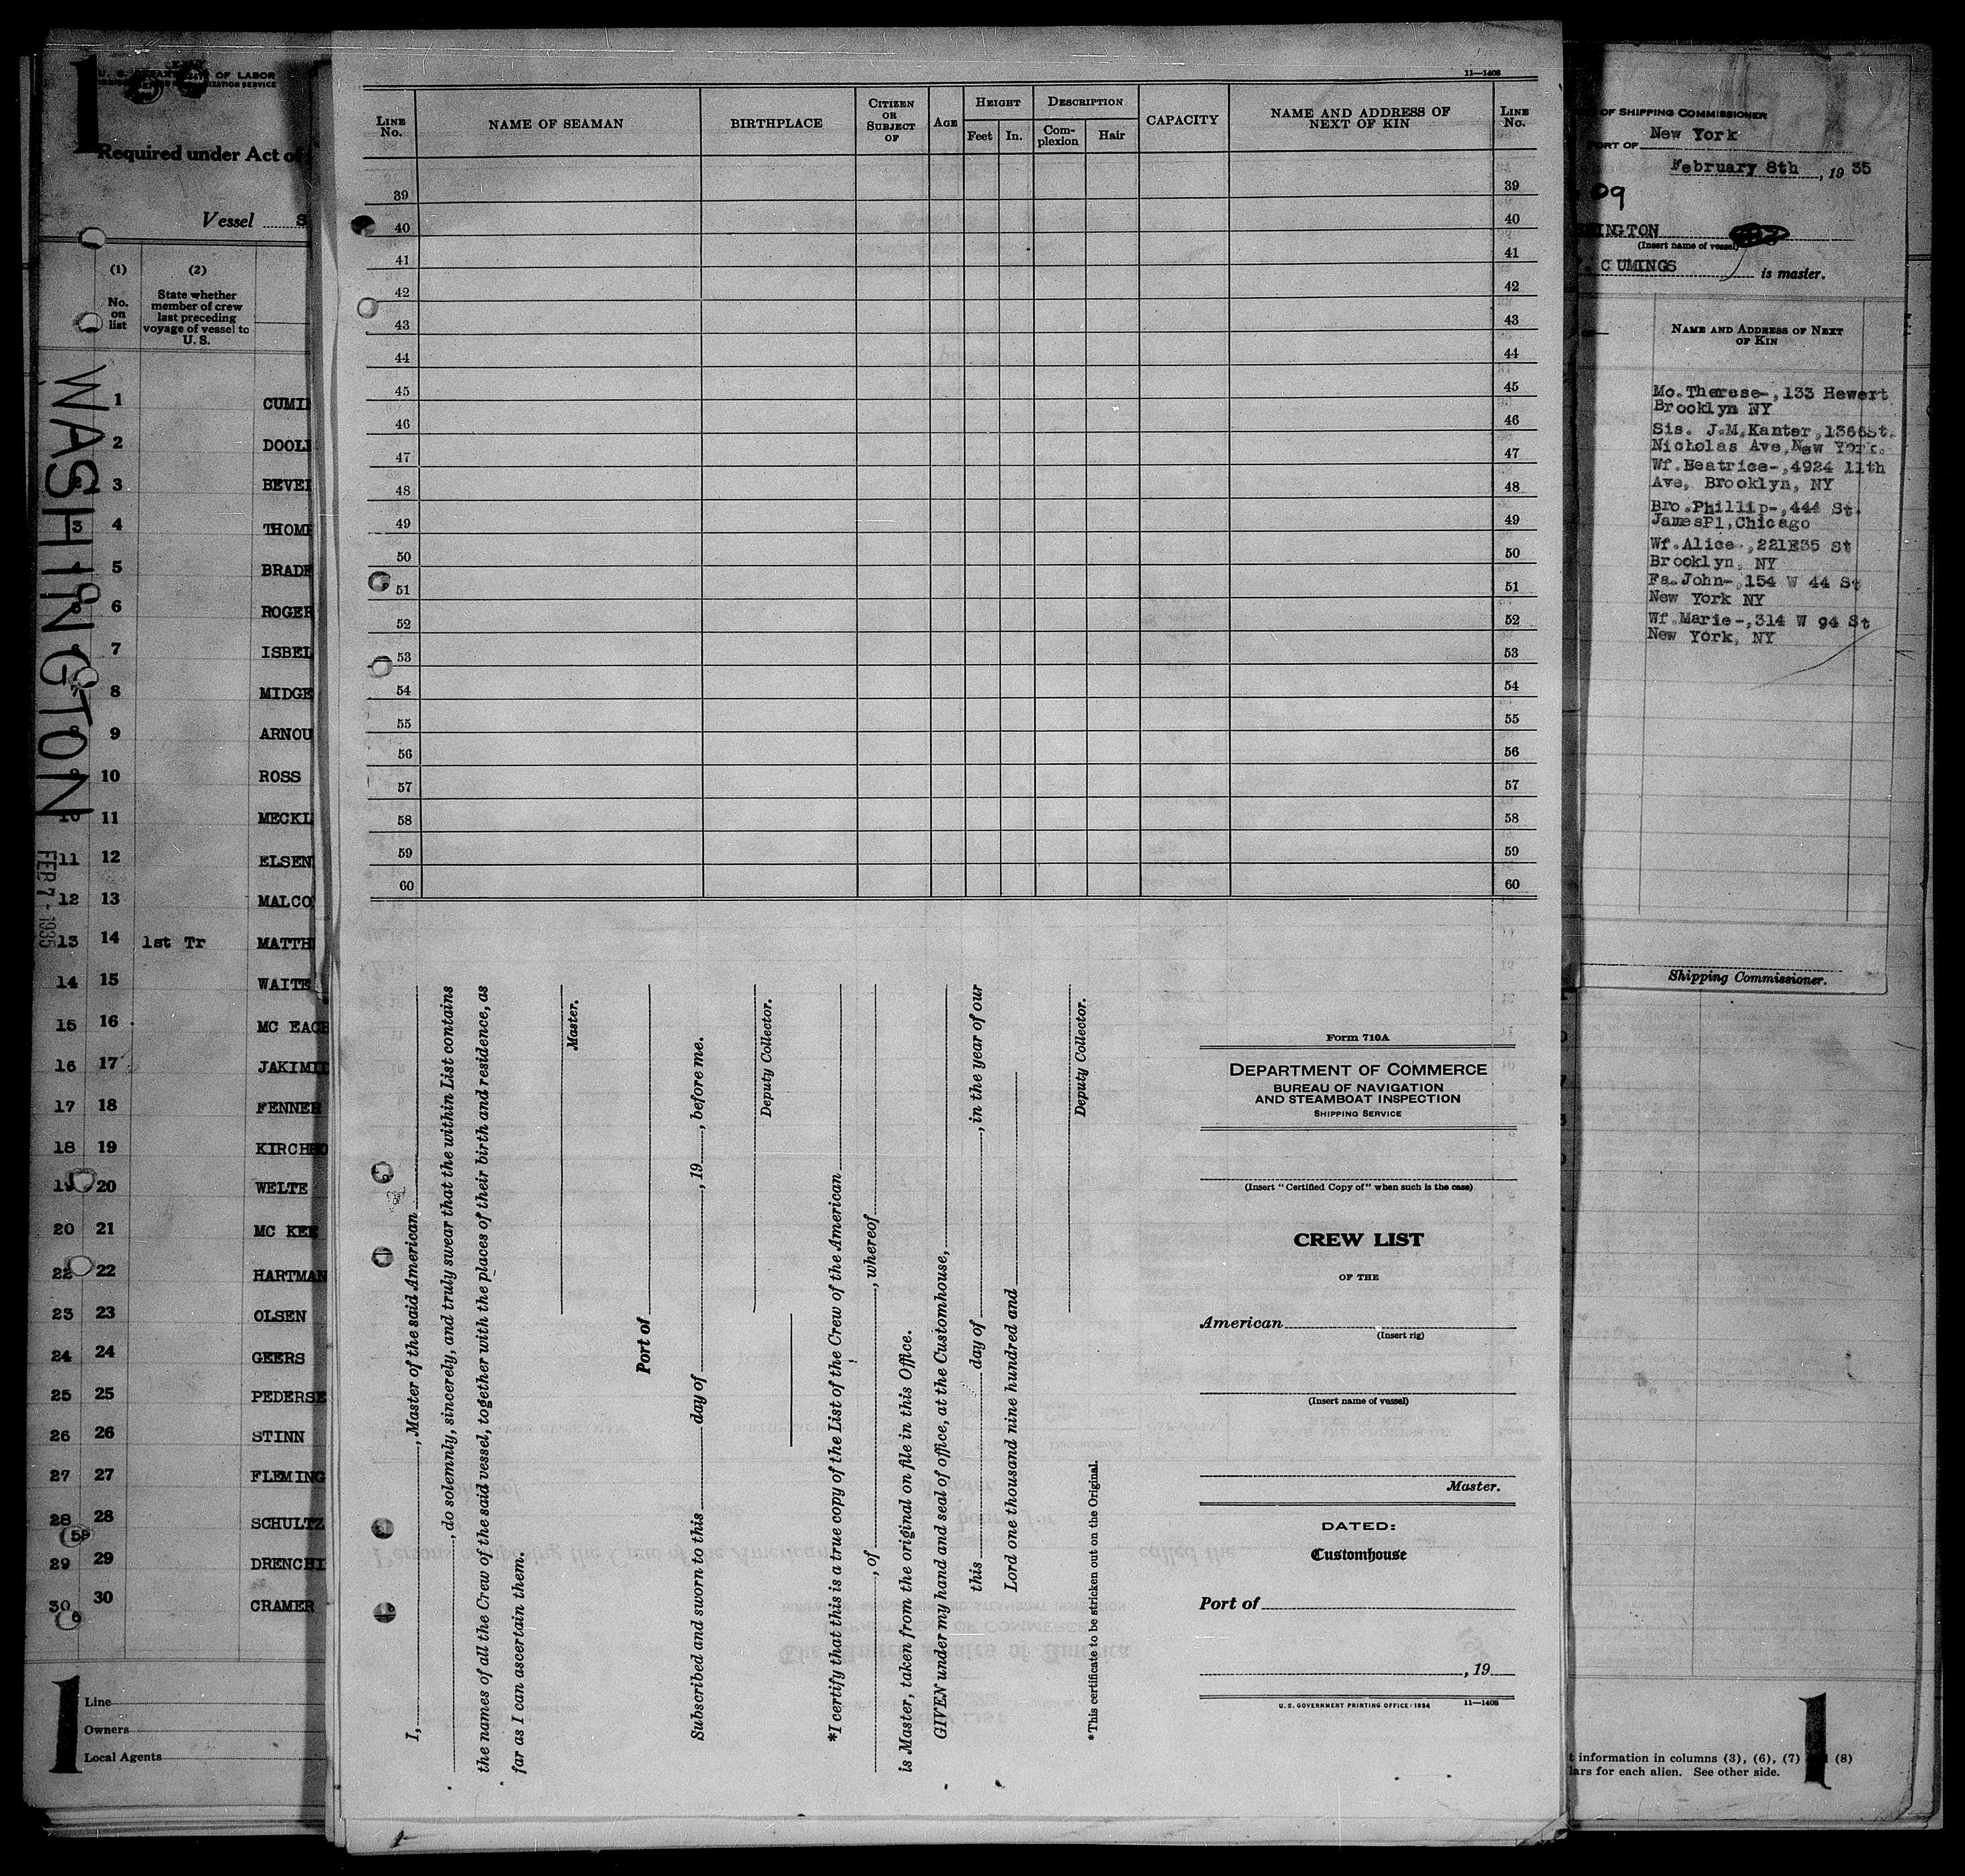 1
U. S. DEPARTMENT OF LABOR
Required under Act of
Vessel S
(1)
(2)
No. on list
State whether member of crew last preceding voyage of vessel to U. S.
WASHINGTON
FEB 7 - 1935
1 CUMI
2 DOOL
3 BEVE
3 4 THOM
5 BRAD
6 ROGER
7 ISBEL
8 MIDGE
9 ARNOU
10 ROSS
10 11 MECKL
11 12 ELSEN
12 13 MALCO
13 14 1st Tr MATTH
14 15 WAITE
15 16 MC EACH
16 17 JAKIMI
17 18 FENNER
18 19 KIRCHHO
19 20 WELTE
20 21 MC KEE
22 22 HARTMAN
23 23 OLSEN
24 24 GEERS
25 25 PEDERSE
26 26 STINN
27 27 FLEMING
28 28 SCHULTZ
29 29 DRENCHI
30 30 CRAMER
1
Line
Owners
Local Agents
11—1408
LINE No.
NAME OF SEAMAN
BIRTHPLACE
CITIZEN OR SUBJECT OF
AGE
HEIGHT
Feet
In.
DESCRIPTION
Complexion
Hair
CAPACITY
NAME AND ADDRESS OF NEXT OF KIN
LINE No.
39 39
40 40
41 41
42 42
43 43
44 44
45 45
46 46
47 47
48 48
49 49
50 50
51 51
52 52
53 53
54 54
55 55
56 56
57 57
58 58
59 59
60 60
I, , Master of the said American
, do solemnly, sincerely, and truly swear that the within List contains
the names of all the Crew of the said vessel, together with the places of their birth and residence, as
far as I can ascertain them.
Master.
Port of
Subscribed and sworn to this day of , 19 , before me.
Deputy Collector.
*I certify that this is a true copy of the List of the Crew of the American
, of , whereof
is Master, taken from the original on file in this Office.
GIVEN under my hand and seal of office, at the Customhouse,
this day of , in the year of our
Lord one thousand nine hundred and
Deputy Collector.
*This certificate to be stricken out on the Original.
Form 710A
DEPARTMENT OF COMMERCE
BUREAU OF NAVIGATION
AND STEAMBOAT INSPECTION
SHIPPING SERVICE
(Insert "Certified Copy of" when such is the case)
CREW LIST
OF THE
American
(Insert rig)
(Insert name of vessel)
Master.
DATED:
Customhouse
Port of
, 19
U. S. GOVERNMENT PRINTING OFFICE: 1934 11—1408
OF SHIPPING COMMISSIONER
PORT OF New York
February 8th, 19 35
09
INGTON
(Insert name of vessel)
CUMINGS is master.
NAME AND ADDRESS OF NEXT
OF KIN
Mo. Therese-, 133 Hewert
Brooklyn NY
Sis. J.M.Kanter, 1366St.
Nicholas Ave, New York.
Wf. Beatrice-, 4924 11th
Ave, Brooklyn, NY
Bro. Phillip-, 444 St.
JamesPl, Chicago
Wf. Alice-, 221E35 St
Brooklyn, NY
Fa. John-, 154 W 44 St
New York NY
Wf. Marie-, 314 W 94 St
New York, NY
Shipping Commissioner.
t information in columns (3), (6), (7) (8)
lars for each alien. See other side.
1